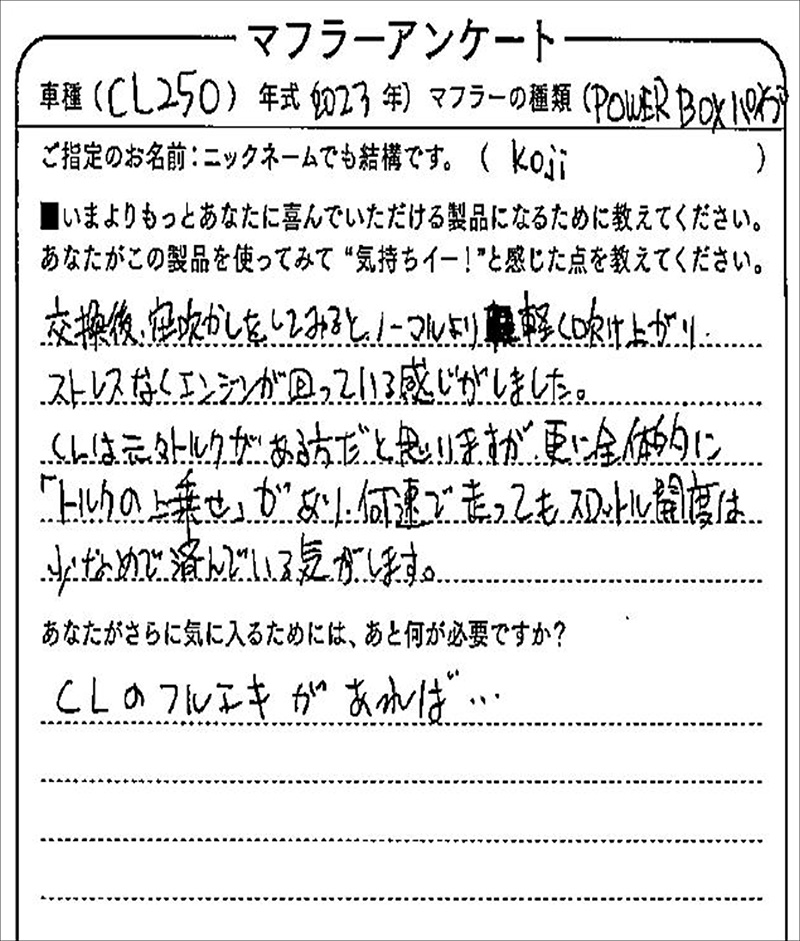 マフラーアンケート
車種(CL250) 年式(2023年) マフラーの種類(POWER BOXパイプ
ご指定のお名前：ニックネームでも結構です。( koji )
■いまよりもっとあなたに喜んでいただける製品になるために教えてください。
あなたがこの製品を使ってみて“気持ちイー！”と感じた点を教えてください。
交換後、空吹かしをしてみると、ノーマルより軽く吹け上がり、
ストレスなくエンジンが回っている感じがしました。
CLは元々トルクがある方だと思いますが、更に全体的に
「トルクの上乗せ」があり、何速で走ってもスロットル開度は
少なめで済んでいる気がします。
あなたがさらに気に入るためには、あと何が必要ですか？
CLのフルエキがあれば…